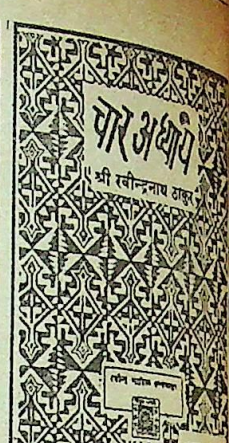 चार अध्याय
श्री रवीन्द्रनाथ ठाकुर